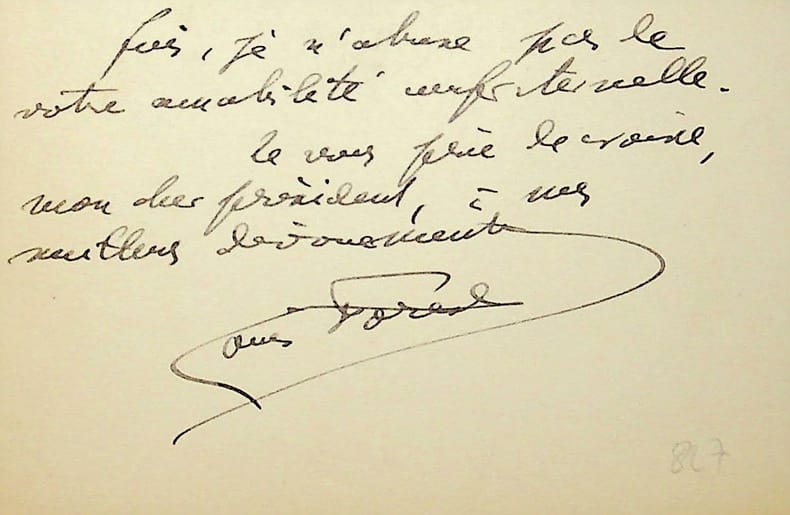 fois, je n'abuse pas de
votre amabilité confraternelle.
Je vous prie de croire,
mon cher président, à mes
meilleurs dévouements
Louis Forest
827